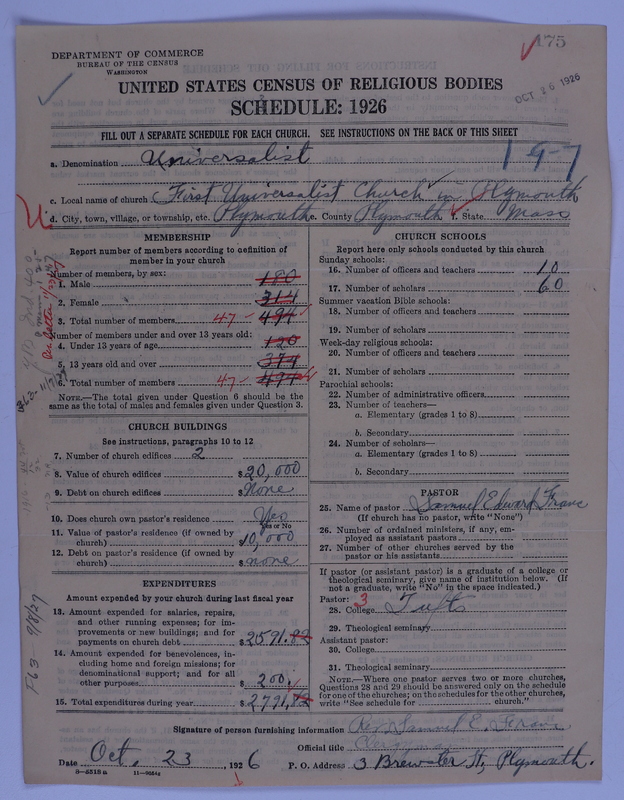 DEPARTMENT OF COMMERCE
BUREAU OF THE CENSUS
WASHINGTON
175
OCT 26 1926
UNITED STATES CENSUS OF RELIGIOUS BODIES
SCHEDULE: 1926
FILL OUT A SEPARATE SCHEDULE FOR EACH CHURCH. SEE INSTRUCTIONS ON THE BACK OF THIS SHEET
a. Denomination Universalist
19-7
c. Local name of church First Universalist Church in Plymouth
d. City, town, village, or township, etc. Plymouth e. County Plymouth f. State Mass
MEMBERSHIP
Report number of members according to definition of
member in your church
Number of members, by sex:
1. Male 180
2. Female 314
3. Total number of members 47 - 494
Number of members under and over 13 years old:
4. Under 13 years of age 120
5. 13 years old and over 374
6. Total number of members 47 - 494
NOTE.—The total given under Question 6 should be
same as the total of males and females given under Question 3.
CHURCH BUILDINGS
See instructions, paragraphs 10 to 12
7. Number of church edifices 2
8. Value of church edifices $20,000
9. Debt on church edifices $None
10. Does church own pastor's residence Yes
Yes or No
11. Value of pastor's residence (if owned by
church) $10,000
12. Debt on pastor's residence (if owned by
church) $none
EXPENDITURES
Amount expended by your church during last fiscal year
13. Amount expended for salaries, repairs,
and other running expenses; for im-
provements or new buildings; and for
payments on church debt $2591.82
14. Amount expended for benevolences, in-
cluding home and foreign missions; for
denominational support; and for all
other purposes $200.
15. Total expenditures during year $2791.82
CHURCH SCHOOLS
Report here only schools conducted by this church
Sunday schools:
16. Number of officers and teachers 10
17. Number of scholars 60
Summer vacation Bible schools:
18. Number of officers and teachers
19. Number of scholars
Week-day religious schools:
20. Number of officers and teachers
21. Number of scholars
Parochial schools:
22. Number of administrative officers
23. Number of teachers—
a. Elementary (grades 1 to 8)
b. Secondary
24. Number of scholars—
a. Elementary (grades 1 to 8)
b. Secondary
PASTOR
25. Name of pastor Samuel Edward
(If church has no pastor, write "None")
26. Number of ordained ministers, if any, em-
ployed as assistant pastors
27. Number of other churches served by the
pastor or his assistants
If pastor (or assistant pastor) is a graduate of a college or
theological seminary, give name of institution below. (If
not a graduate, write "No" in the space indicated.)
Pastor: 3
28. College Tufts
29. Theological seminary
Assistant pastor:
30. College
31. Theological seminary
NOTE.—Where one pastor serves two or more churches,
Questions 28 and 29 should be answered only on the schedule
for one of the churches; on the schedules for the other churches,
write "See schedule for church."
Signature of person furnishing information Rev. Samuel E.
Official title
Date Oct. 23, 1926 P. O. Address 3 Brewster St, Plymouth.
8-5318a 11-9684
F63 - 9/8/27